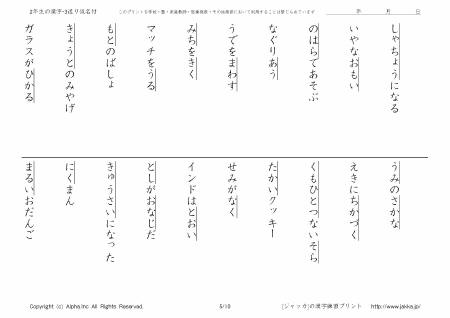 2年生の漢字-3送り仮名付
このプリントを学校・塾・家庭教師・医療機関・その他施設において利用することは禁じられています
年 月 日
しゃちょうになる
いやなおもい
のはらであそぶ
なぐりあう
うでをまわす
みちをきく
マッチをうる
もとのばしょ
きょうとのみやげ
ガラスがひかる
うみのさかな
えきにちかづく
くもひとつないそら
たかいクッキー
せみがなく
インドはとおい
としがおなじだ
きゅうさいになった
にくまん
まるいおだんご
Copyright (c) Alpha.Inc All Rights Reserved.
5/10
[ジャッカ]の漢字練習プリント http://www.jakka.jp/